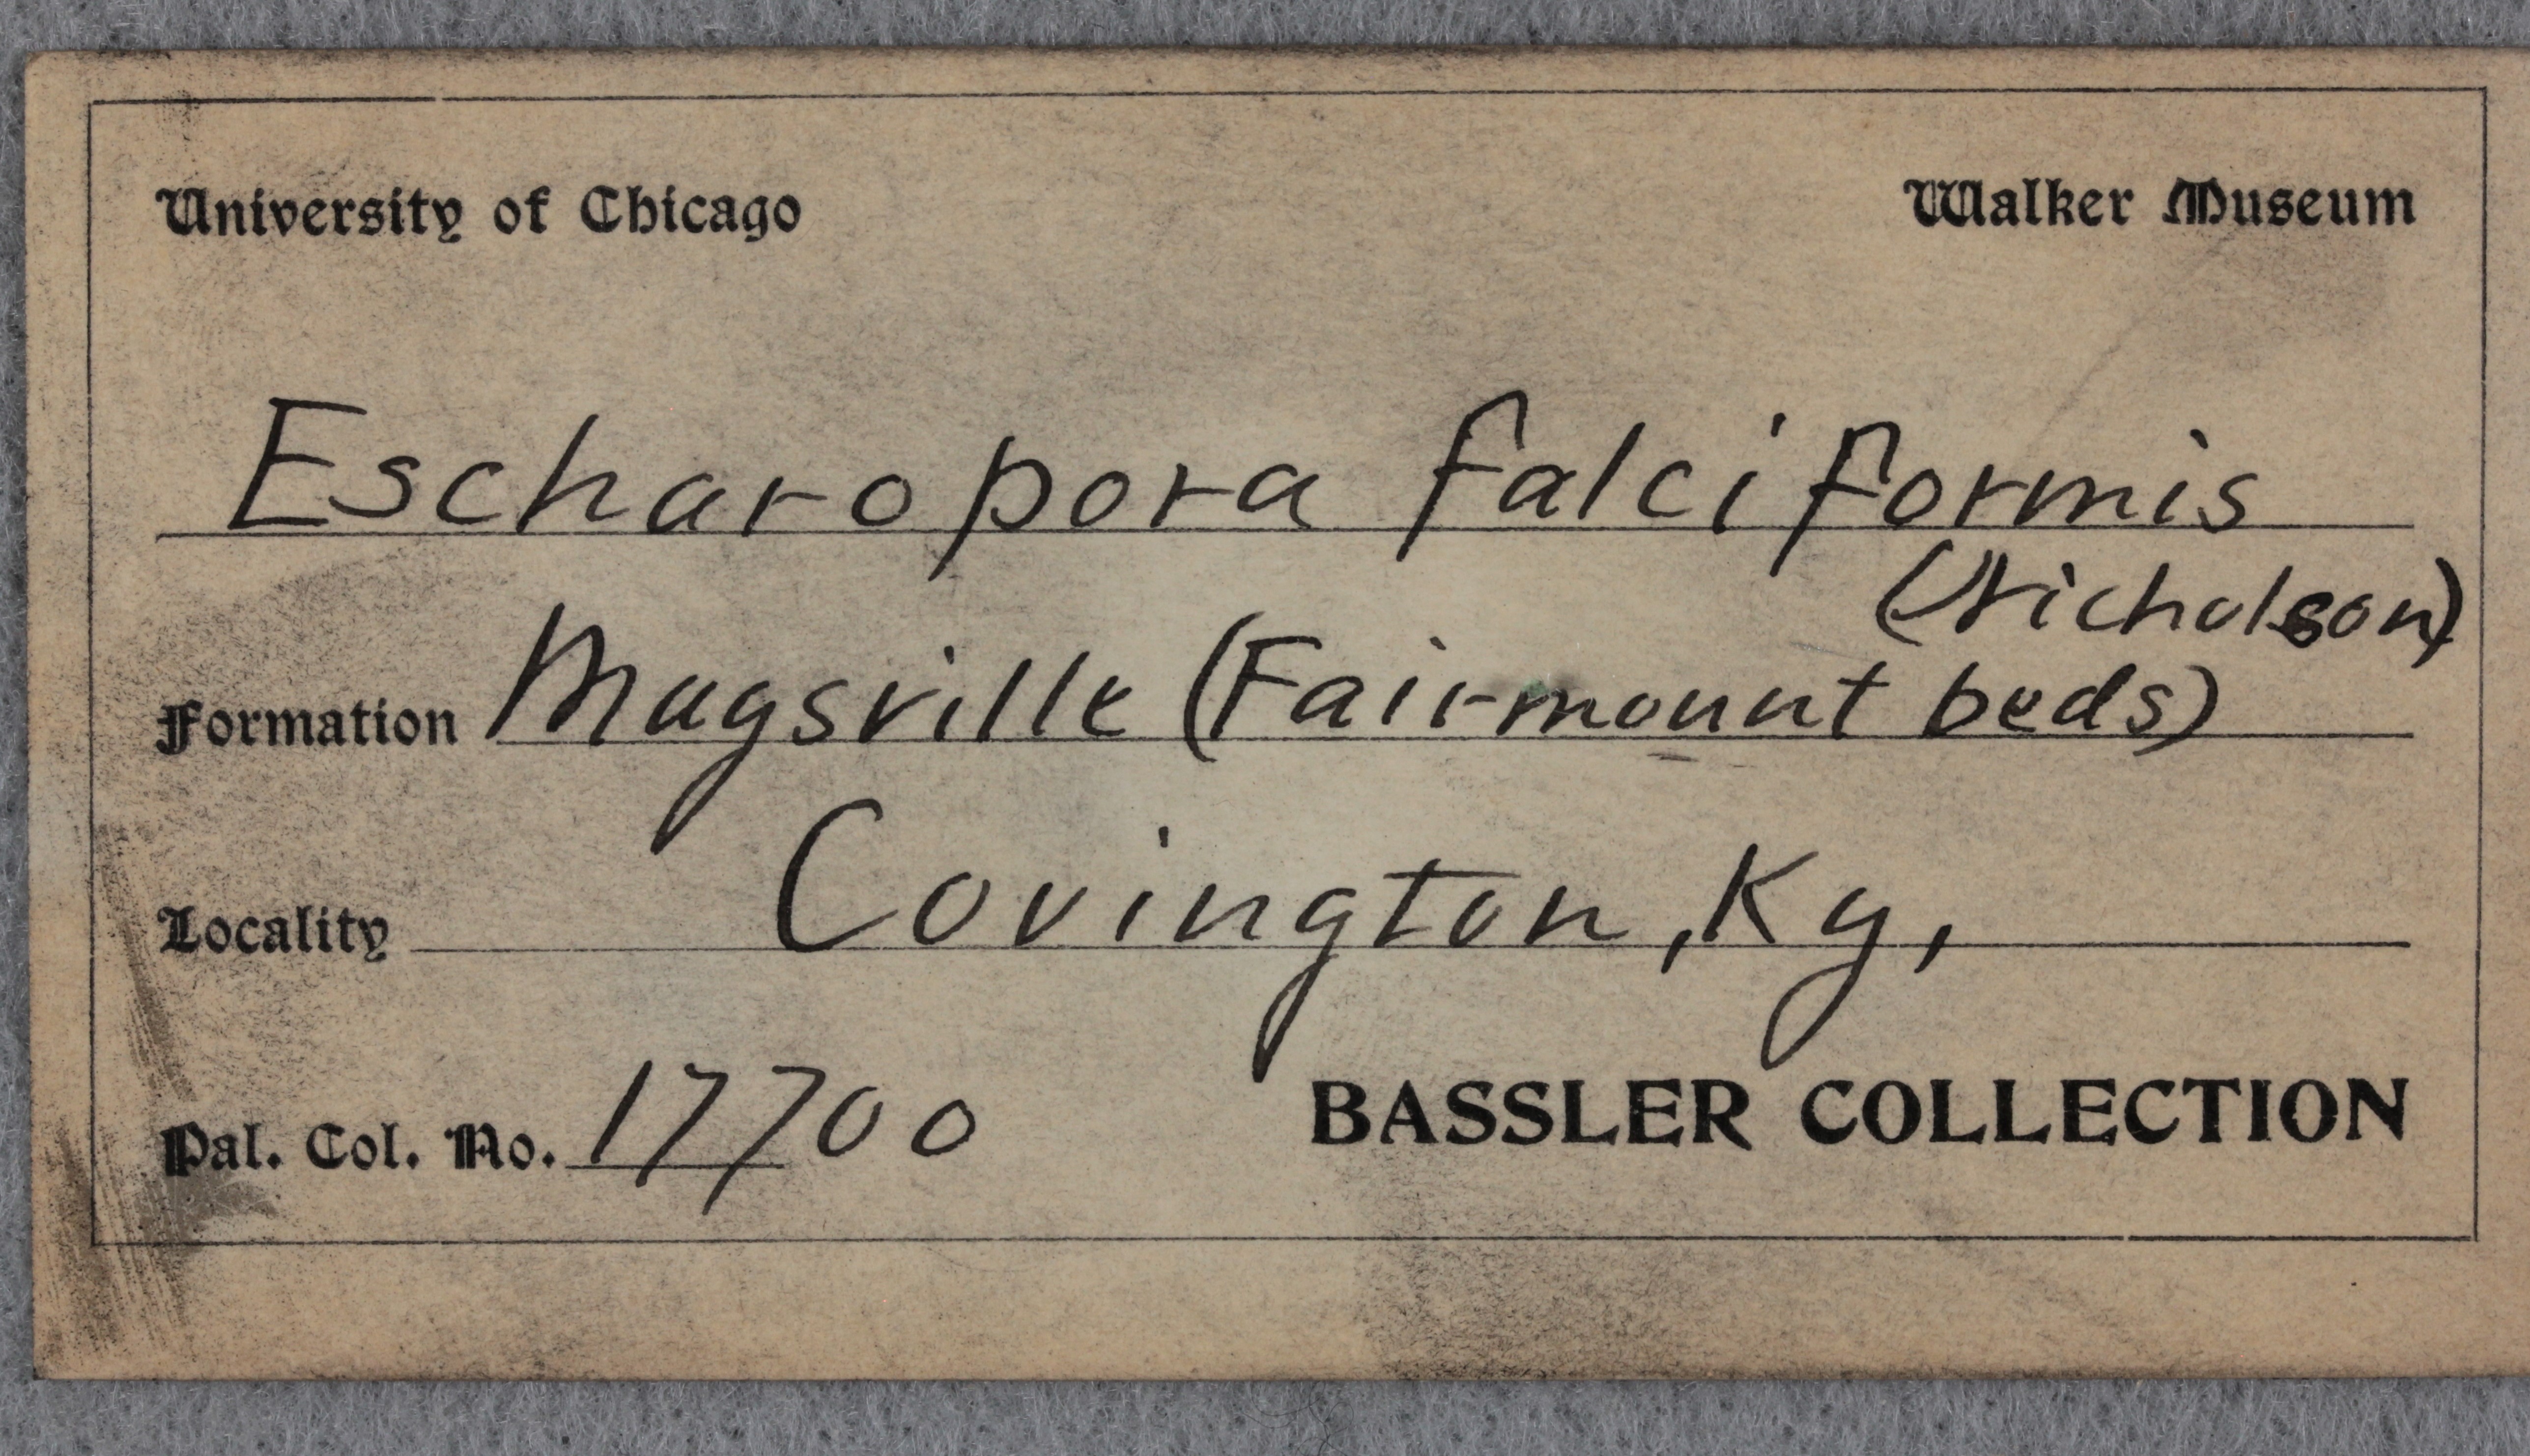 University of Chicago Walker Museum
Escharopora falciformis
(Nicholson)
Formation Maysville (Fairmount beds)
Locality Covington, Ky,
Pal. Col. No. 17700 BASSLER COLLECTION